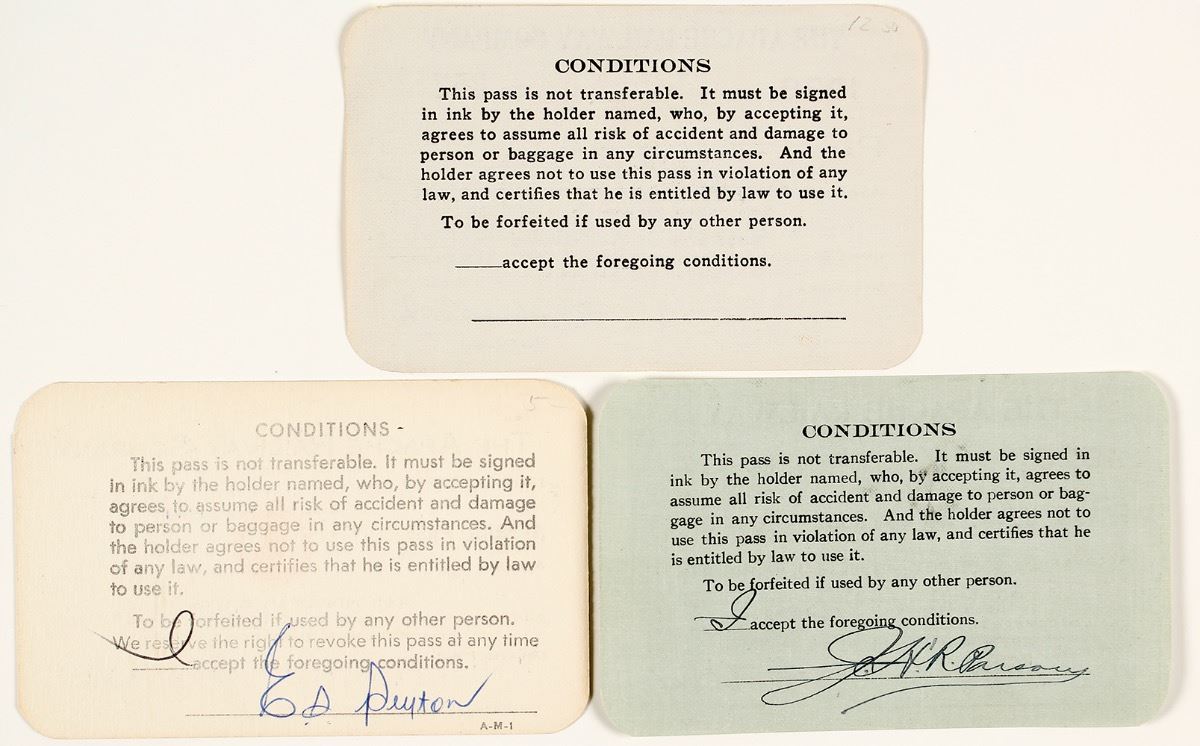 12 50
CONDITIONS
This pass is not transferable. It must be signed
in ink by the holder named, who, by accepting it,
agrees to assume all risk of accident and damage to
person or baggage in any circumstances. And the
holder agrees not to use this pass in violation of any
law, and certifies that he is entitled by law to use it.
To be forfeited if used by any other person.
accept the foregoing conditions.
5-
CONDITIONS -
This pass is not transferable. It must be signed
in ink by the holder named, who, by accepting it,
agrees to assume all risk of accident and damage
to person or baggage in any circumstances. And
the holder agrees not to use this pass in violation
of any law, and certifies that he is entitled by law
to use it.
To be forfeited if used by any other person.
We reserve the right to revoke this pass at any time
I accept the foregoing conditions.
E D Peyton
A-M-1
CONDITIONS
This pass is not transferable. It must be signed in
ink by the holder named, who, by accepting it, agrees to
assume all risk of accident and damage to person or bag-
gage in any circumstances. And the holder agrees not to
use this pass in violation of any law, and certifies that he
is entitled by law to use it.
To be forfeited if used by any other person.
I accept the foregoing conditions.
J. H. R. Parsons